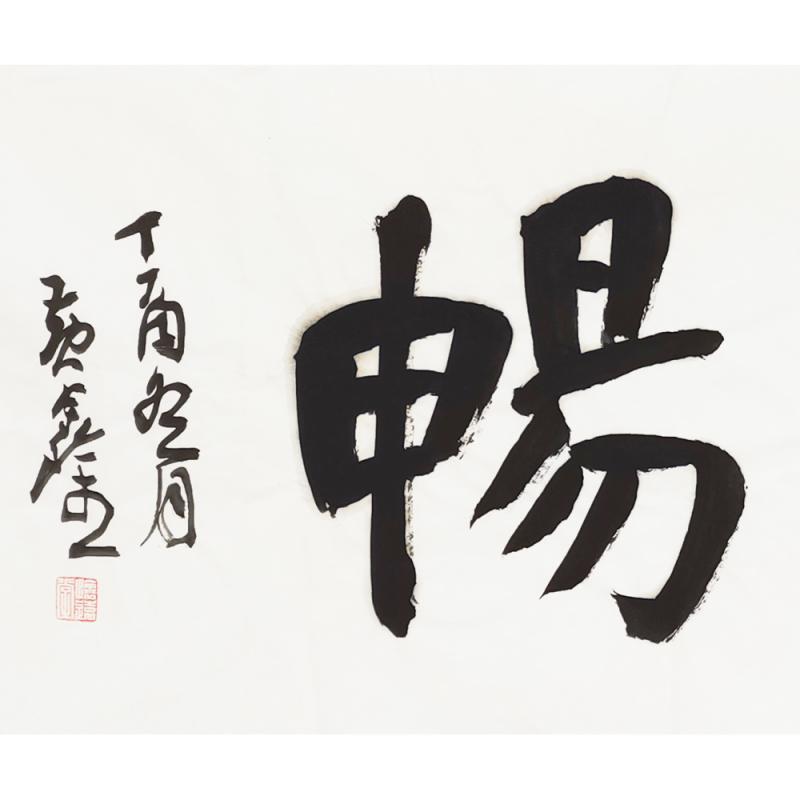 暢
丁酉冬月
黄